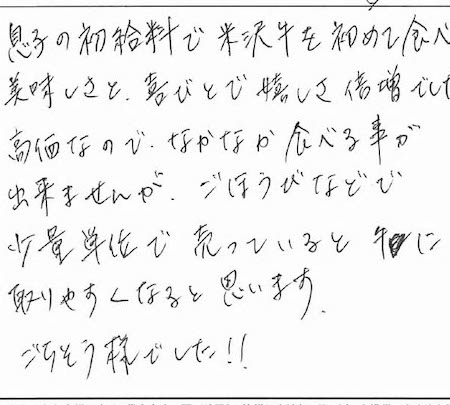 息子の初給料で米沢牛を初めて食べ
美味しさと、喜びとで嬉しさ倍増でした
高価なので、なかなか食べる事が
出来ませんが、ごほうびなどで
少量単位で売っていると手に
取りやすくなると思います。
ごちそう様でした!!